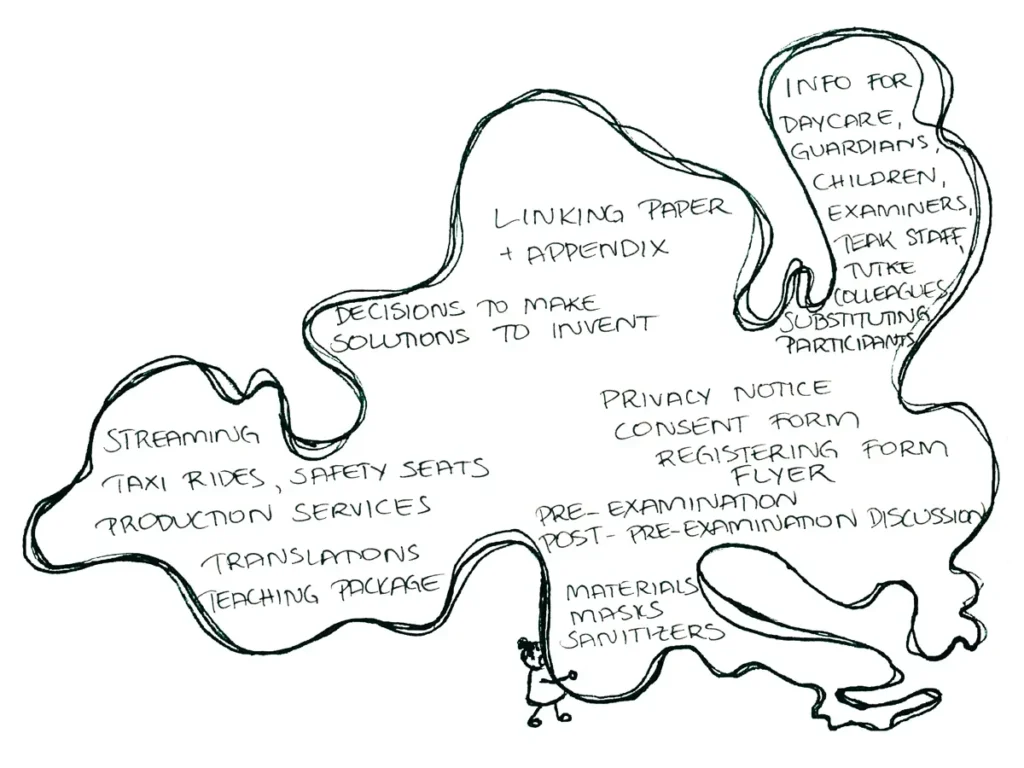 INFO FOR
DAYCARE,
GUARDIANS,
CHILDREN,
EXAMINERS,
TEAK STAFF,
TUTKE
COLLEAGUES,
SUBSTITUTING
PARTICIPANTS
LINKING PAPER
+ APPENDIX
DECISIONS TO MAKE
SOLUTIONS TO INVENT
PRIVACY NOTICE
CONSENT FORM
REGISTERING FORM
FLYER
PRE-EXAMINATION
POST-PRE-EXAMINATION DISCUSSION
STREAMING
TAXI RIDES, SAFETY SEATS
PRODUCTION SERVICES
TRANSLATIONS
TEACHING PACKAGE
MATERIALS
MASKS
SANITIZERS